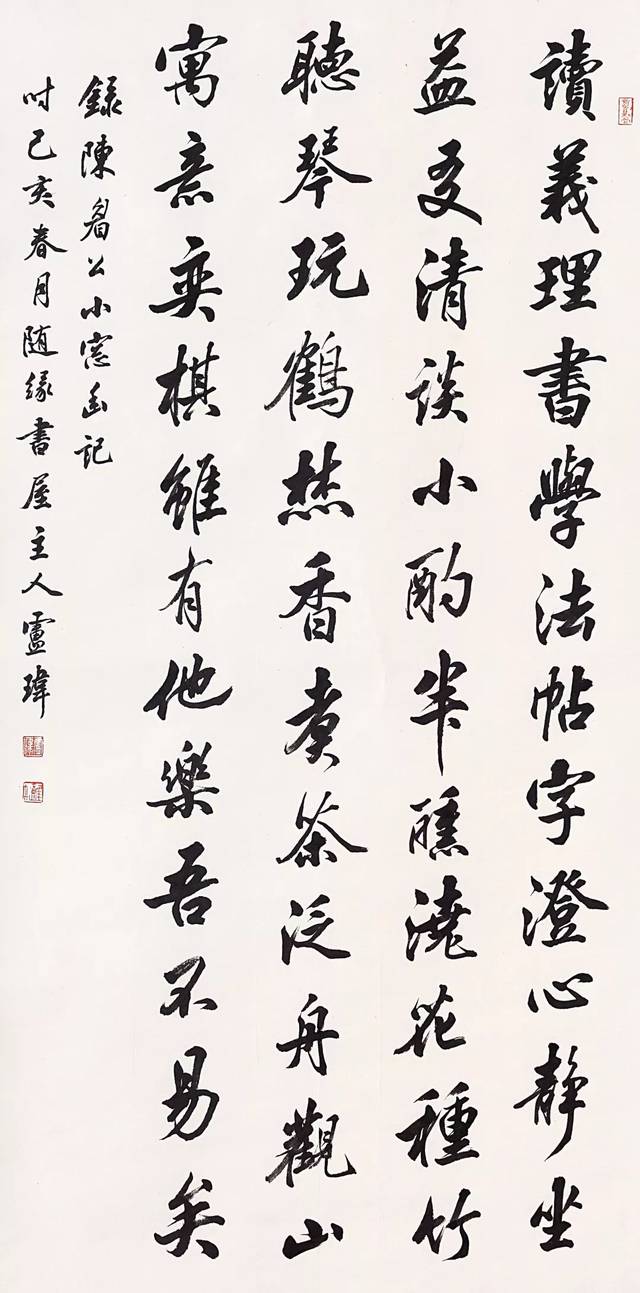 讀義理書學法帖字澄心静坐
益友清談小酌半醺澆花種竹
聽琴玩鶴焚香煮茶泛舟觀山
寓意奕棋雖有他樂吾不易矣
錄陳眉公小窗幽記
时己亥春月随缘書屋主人盧瑋